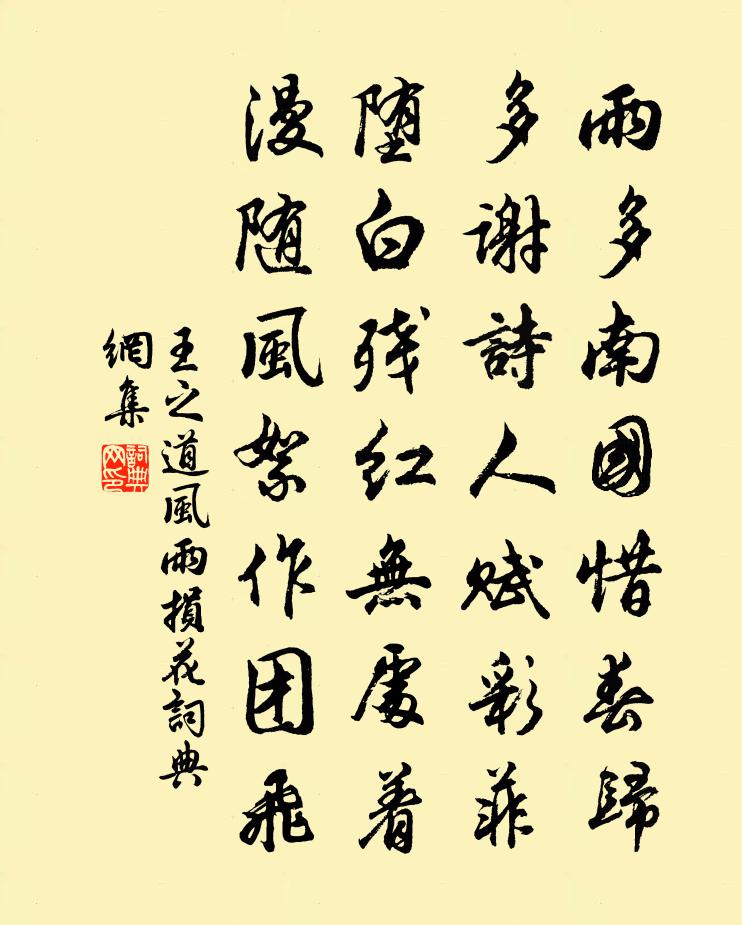 雨多南國惜春歸
多謝詩人賦彩菲
堕白残红無處着
漫随風絮作团飛
王之道風雨損花詞典
網集
詞典
网印